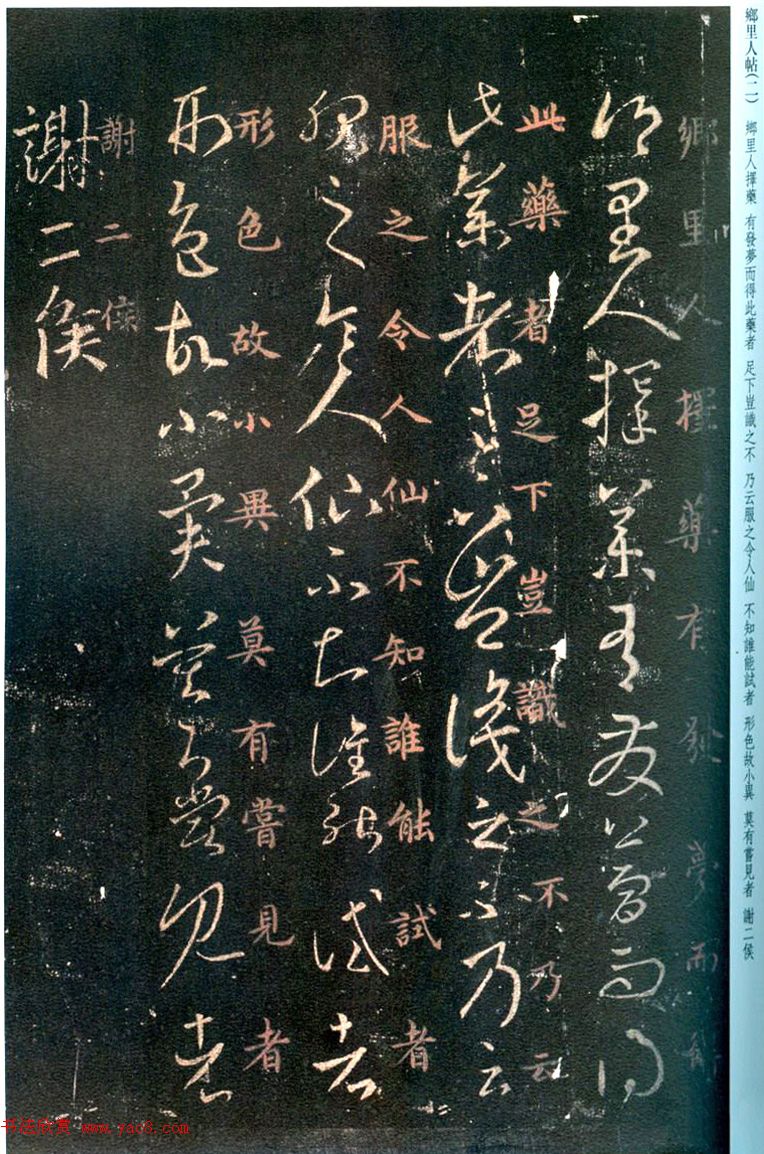 鄉里人帖(二) 鄉里人擇藥 有發夢而得此藥者 足下豈識之不 乃云服之令人仙 不知誰能試者 形色故小異 莫有嘗見者 謝二侯
鄉里人擇藥有發夢而得
鄉里人擇藥有發夢而得
此藥者足下豈識之不乃云
此藥者足下豈識之不乃云
服之令人仙不知誰能試者
服之令人仙不知誰能試者
形色故小異莫有嘗見者
形色故小異莫有嘗見者
謝二侯
謝二侯
书法欣赏 www.yac8.com